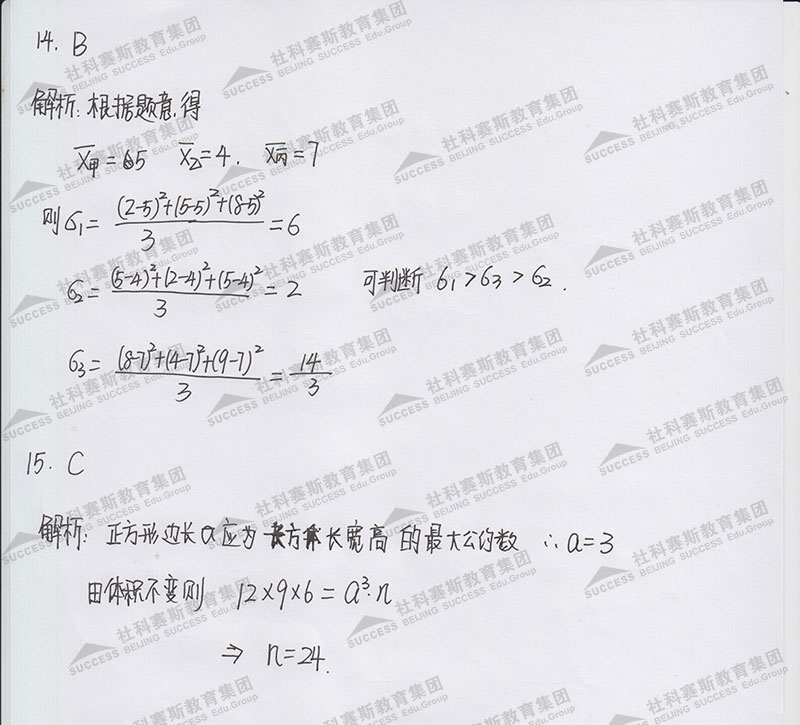 14. B
解析:根据题意,得
x̄甲=65 x̄乙=4. x̄丙=7
则σ1= (2-5)²+(5-5)²+(8-5)² / 3 =6
σ2= (5-4)²+(2-4)²+(5-4)² / 3 =2 可判断 σ1>σ3>σ2.
σ3= (8-7)²+(4-7)²+(9-7)² / 3 = 14/3
15. C
解析: 正方形边长a应为长方体长宽高的最大公约数 ∴a=3
由体积不变则 12×9×6=a³·n
⇒ n=24.
社科赛斯教育集团
SUCCESS BEIJING SUCCESS Edu.Group